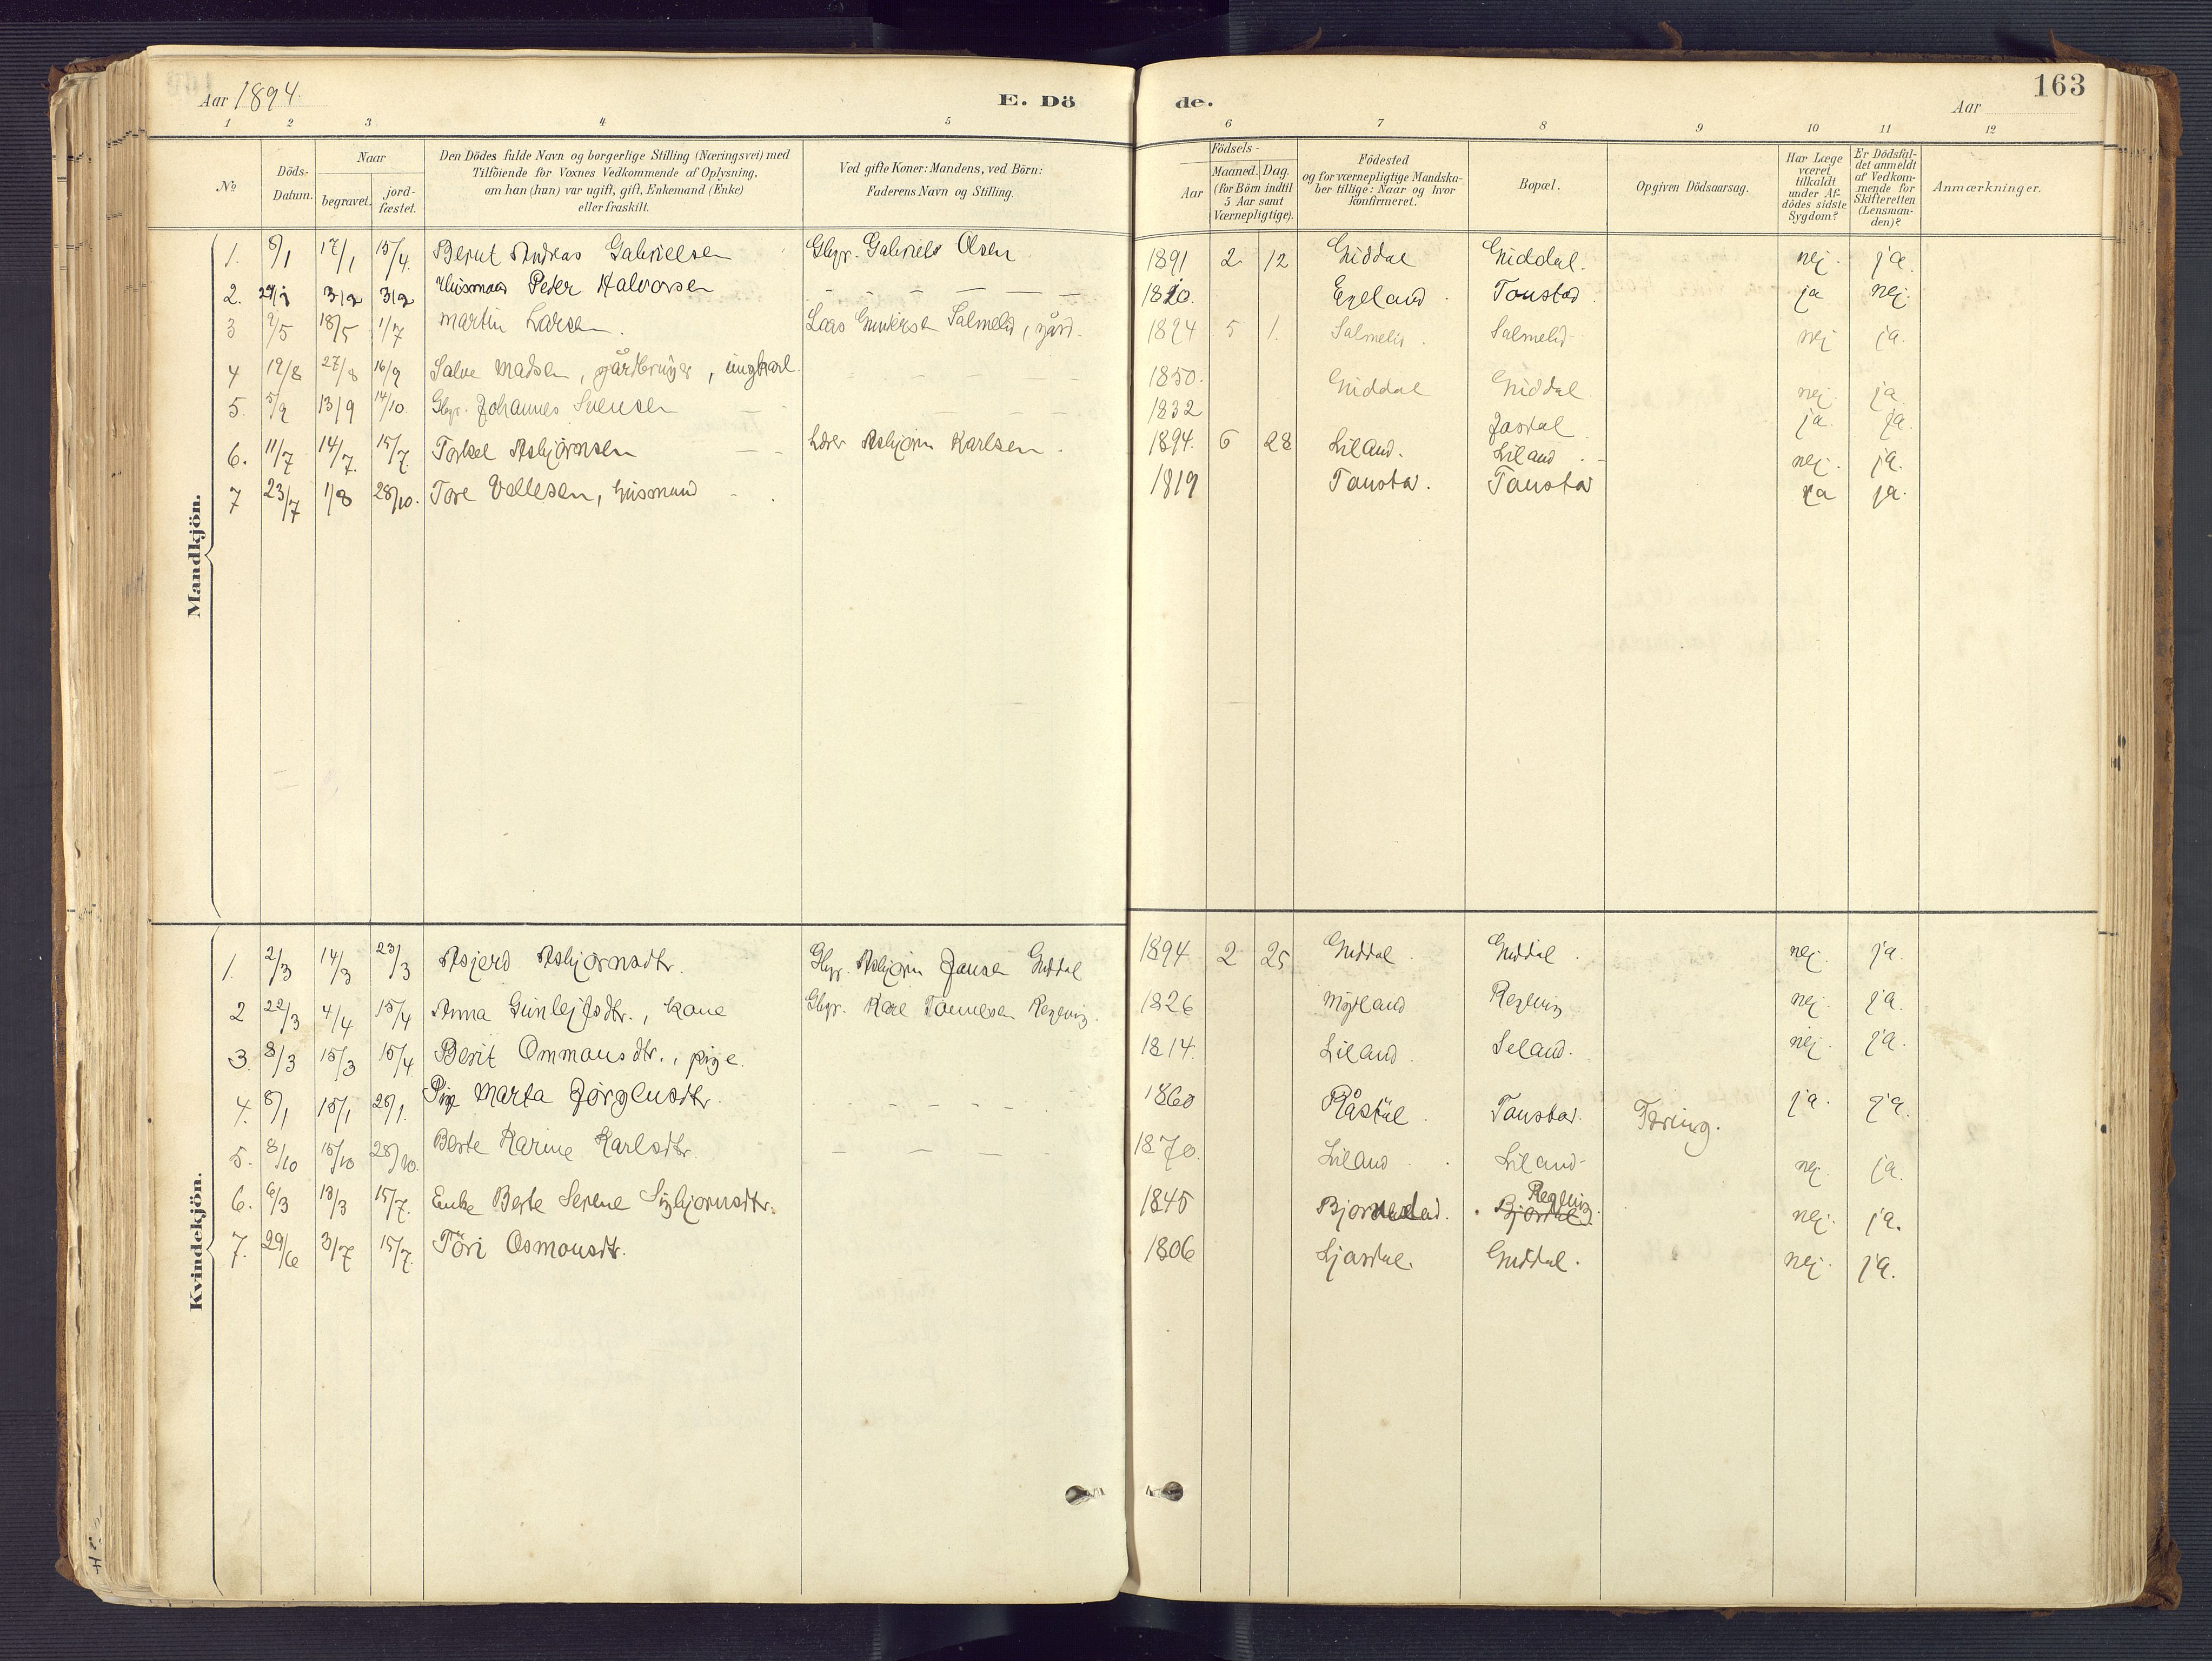 Aar 1894.
E. Dö
de.
Aar
163
1 2 3 4 5 6 7 8 9 10 11 12
No
Döds-Datum.
Naar
begravet.
jord-fæstet.
Den Dödes fulde Navn og borgerlige Stilling (Næringsvei) med
Tilföiende for Voxnes Vedkommende af Oplysning,
om han (hun) var ugift, gift, Enkemand (Enke)
eller fraskilt.
Ved gifte Koner: Mandens, ved Börn:
Faderens Navn og Stilling.
Födsels-
Aar
Maaned. Dag.
(for Börn indtil
5 Aar samt
Værnepligtige).
Födested
og for værnepligtige Mandska-
ber tillige: Naar og hvor
konfirmeret.
Bopæl.
Opgiven Dödsaarsag.
Har Læge
været
tilkaldt
under Af-
dödes sidste
Sygdom?
Er Dödsfal-
det anmeldt
af Vedkom-
mende for
Skifteretten
(Lensman-
den)?
Anmærkninger.
Mandkjön.
1. 8/1 17/1 15/4. Bernt Andreas Gabrielsen Gbgr. Gabriel Olsen 1891 2 12 Guddal Guddal. nej. ja.
2. 3/2 3/2 Husmand Peder Halvorsen Egeland. Tonstad. ja nej.
3 9/5 18/5 1/7 Martin Larsen. Salmelid, gård. 1894 5 1. Salmelid. Salmelid nej ja.
4 19/8 27/8 16/9 Salve Madsen, gårdbruger, ungkarl. 1850. Guddal Guddal nej. ja
5. 5/9 13/9 14/10. Gbgr. Johannes Svensen 1832 Josdal ja. ja.
6. 11/7 14/7. 15/7. Torkel Asbjørnsen Lærer Asbjørn Karlsen. 1894. 6 28 Liland. Liland. nej. ja.
7 23/7 1/8 28/10. Tore Vallesen, husmand 1819 Tonstad. Tonstad ja ja.
Kvindekjön.
1. 2/3 14/3 23/3 Asjerd Asbjørnsdtr. Gbgr. Asbjørn Jansen Guddal 1894 2 25 Guddal. Guddal. nej. ja.
2 22/3 4/4 15/4 Anna Gunlejfsdtr., kone Gbgr. Karl Tønnesen 1826 Møgland nej. ja.
3. 8/3 15/3 15/4 Berit Ommunsdtr., pige. 1814. Liland. Seland. nej. ja.
4. 8/1 15/1 28/1. Pige Marta Jørgensdtr. 1860 Råstøl. Tonstad. Tæring. ja. ja.
5. 8/10 15/10 28/10. Berte Karine Karlsdtr. 1870. Liland. Liland nej. ja.
6. 6/3 13/3 15/7. Enke Berte Serene Sigbjørnsdtr. 1845 Bjordal nej. ja.
7. 29/6 3/7 15/7. Tori Osmonsdtr. 1806 Ljosdal. Guddal. nej. ja.